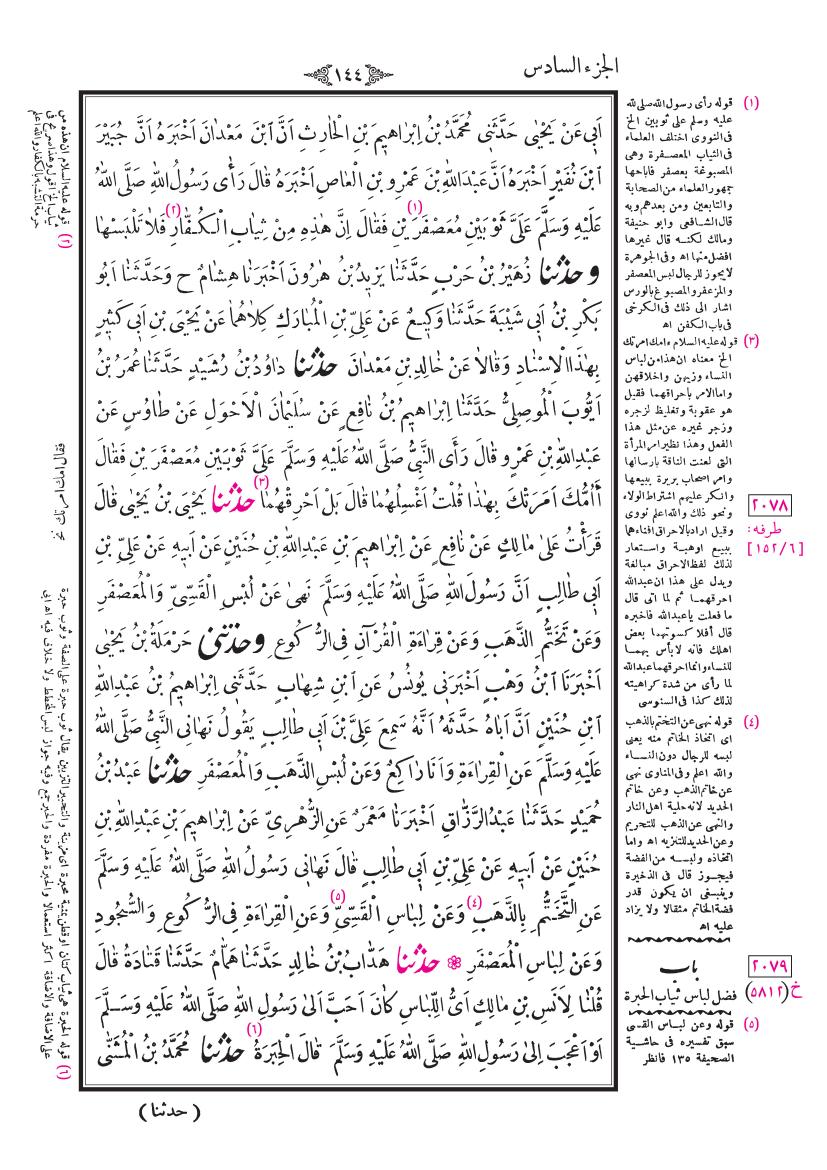 الجزء السادس
١٤٤
اَبى عَنْ يَحْيٰى حَدَّثَنٰى مُحَمَّدُ بْنُ اِبْرٰاهٖيمَ بْنِ الْحٰارِثِ اَنَّ ابْنَ مَعْدٰانَ اَخْبَرَهُ اَنَّ جُبَيْرَ
ابْنَ نُفَيْرٍ اَخْبَرَهُ اَنَّ عَبْدَ اللّٰهِ بْنَ عَمْرِو بْنِ الْعٰاصِ اَخْبَرَهُ قٰالَ رَأٰى رَسُولُ اللّٰهِ صَلَّى اللّٰهُ
عَلَيْهِ وَسَلَّمَ عَلَىَّ ثَوْبَيْنِ مُعَصْفَرَيْنِ (١) فَقٰالَ اِنَّ هٰذِهِ مِنْ ثِيٰابِ الْكُفّٰارِ (٢) فَلاٰ تَلْبَسْهٰا
وحدثنا زُهَيْرُ بْنُ حَرْبٍ حَدَّثَنٰا يَزٖيدُ بْنُ هٰرُونَ اَخْبَرَنٰا هِشٰامٌ ح وَحَدَّثَنٰا اَبُو
بَكْرِ بْنُ اَبٖى شَيْبَةَ حَدَّثَنٰا وَكٖيعٌ عَنْ عَلِىِّ بْنِ الْمُبٰارَكِ كِلاٰهُمٰا عَنْ يَحْيَى بْنِ اَبٖى كَثٖيرٍ
بِهٰذَا الْاِسْنٰادِ وَقٰالاٰ عَنْ خٰالِدِ بْنِ مَعْدٰانَ حدثنا دٰاوُدُ بْنُ رُشَيْدٍ حَدَّثَنٰا عُمَرُ بْنُ
اَيُّوبَ الْمَوْصِلِىُّ حَدَّثَنٰا اِبْرٰاهٖيمُ بْنُ نٰافِعٍ عَنْ سُلَيْمٰانَ الْاَحْوَلِ عَنْ طٰاوُسٍ عَنْ
عَبْدِ اللّٰهِ بْنِ عَمْرٍو قٰالَ رَأَى النَّبِىُّ صَلَّى اللّٰهُ عَلَيْهِ وَسَلَّمَ عَلَىَّ ثَوْبَيْنِ مُعَصْفَرَيْنِ فَقٰالَ
أَاُمُّكَ اَمَرَتْكَ بِهٰذٰا قُلْتُ اَغْسِلُهُمٰا قٰالَ بَلْ اَحْرِقْهُمٰا (٣) حدثنا يَحْيَى بْنُ يَحْيٰى قٰالَ
قَرَأْتُ عَلٰى مٰالِكٍ عَنْ نٰافِعٍ عَنْ اِبْرٰاهٖيمَ بْنِ عَبْدِ اللّٰهِ بْنِ حُنَيْنٍ عَنْ اَبٖيهِ عَنْ عَلِىِّ بْنِ
اَبٖى طٰالِبٍ اَنَّ رَسُولَ اللّٰهِ صَلَّى اللّٰهُ عَلَيْهِ وَسَلَّمَ نَهٰى عَنْ لُبْسِ الْقَسِّىِّ وَالْمُعَصْفَرِ
وَعَنْ تَخَتُّمِ الذَّهَبِ وَعَنْ قِرٰاءَةِ الْقُرْآنِ فِى الرُّكُوعِ وحدثنى حَرْمَلَةُ بْنُ يَحْيٰى
اَخْبَرَنَا ابْنُ وَهْبٍ اَخْبَرَنٖى يُونُسُ عَنِ ابْنِ شِهٰابٍ حَدَّثَنٖى اِبْرٰاهٖيمُ بْنُ عَبْدِ اللّٰهِ
ابْنِ حُنَيْنٍ اَنَّ اَبٰاهُ حَدَّثَهُ اَنَّهُ سَمِعَ عَلِىَّ بْنَ اَبٖى طٰالِبٍ يَقُولُ نَهٰانِى النَّبِىُّ صَلَّى اللّٰهُ
عَلَيْهِ وَسَلَّمَ عَنِ الْقِرٰاءَةِ وَاَنٰا رٰاكِعٌ وَعَنْ لُبْسِ الذَّهَبِ وَالْمُعَصْفَرِ حدثنا عَبْدُ بْنُ
حُمَيْدٍ حَدَّثَنٰا عَبْدُ الرَّزّٰاقِ اَخْبَرَنٰا مَعْمَرٌ عَنِ الزُّهْرِىِّ عَنْ اِبْرٰاهٖيمَ بْنِ عَبْدِ اللّٰهِ بْنِ
حُنَيْنٍ عَنْ اَبٖيهِ عَنْ عَلِىِّ بْنِ اَبٖى طٰالِبٍ قٰالَ نَهٰانٖى رَسُولُ اللّٰهِ صَلَّى اللّٰهُ عَلَيْهِ وَسَلَّمَ
عَنِ التَّخَتُّمِ بِالذَّهَبِ (٤) وَعَنْ لِبٰاسِ الْقَسِّىِّ (٥) وَعَنِ الْقِرٰاءَةِ فِى الرُّكُوعِ وَالسُّجُودِ
وَعَنْ لِبٰاسِ الْمُعَصْفَرِ ۞ حدثنا هَدّٰابُ بْنُ خٰالِدٍ حَدَّثَنٰا هَمّٰامٌ حَدَّثَنٰا قَتٰادَةُ قٰالَ
قُلْنٰا لِاَنَسِ بْنِ مٰالِكٍ اَىُّ اللِّبٰاسِ كٰانَ اَحَبَّ اِلٰى رَسُولِ اللّٰهِ صَلَّى اللّٰهُ عَلَيْهِ وَسَلَّمَ
اَوْ اَعْجَبَ اِلٰى رَسُولِ اللّٰهِ صَلَّى اللّٰهُ عَلَيْهِ وَسَلَّمَ قٰالَ الْحِبَرَةُ (٦) حدثنا مُحَمَّدُ بْنُ الْمُثَنّٰى
( حدثنا )
(١) قوله رأى رسول الله صلى الله
عليه وسلم على ثوبين الخ
فى النووى اختلف العلماء
فى الثياب المعصفرة وهى
المصبوغة بعصفر فاباحها
جمهور العلماء من الصحابة
والتابعين ومن بعدهم وبه
قال الشافعى وابو حنيفة
ومالك لكنه قال غيرها
افضل منها اه وفى الجوهرة
لا يجوز للرجال لبس المعصفر
والمزعفر والمصبوغ بالورس
اشار الى ذلك فى الكرخى
فى باب الكفن اه
(٣) قوله عليه السلام ءامك امرتك
الخ معناه ان هذا من لباس
النساء وزيهن واخلاقهن
واما الامر باحراقهما فقيل
هو عقوبة وتغليظ لزجره
وزجر غيره عن مثل هذا
الفعل وهذا نظير امر المرأة
التى لعنت الناقة بارسالها
وامر اصحاب بريرة ببيعها
وانكر عليهم اشتراط الولاء
ونحو ذلك والله اعلم نووى
وقيل اراد بالاحراق افناءهما
ببيع اوهبة واستعار
لذلك لفظ الاحراق مبالغة
ويدل على هذا ان عبدالله
احرقهما ثم لما اتى قال
ما فعلت يا عبدالله فاخبره
قال أفلا كسوتهما بعض
اهلك فانه لا بأس بهما
للنساء وانما احرقهما عبدالله
لما رأى من شدة كراهيته
لذلك كذا فى السنوسى
(٤) قوله نهى عن التختم بالذهب
اى اتخاذ الخاتم منه يعنى
لبسه للرجال دون النساء
والله اعلم وفى المناوى نهى
عن خاتم الذهب وعن خاتم
الحديد لانه حلية اهل النار
والنهى عن الذهب للتحريم
وعن الحديد للتنزيه اه واما
اتخاذه ولبسه من الفضة
فيجوز قال فى الذخيرة
وينبغى ان يكون قدر
فضة الخاتم مثقالا ولا يزاد
عليه اه
باب
فضل لباس ثياب الحبرة
(٥) قوله وعن لباس القسى
سبق تفسيره فى حاشية
الصحيفة ١٣٥ فانظر
٢٠٧٨
طرفه:
[١٥٢/٦]
٢٠٧٩
خ (٥٨١٢)
(٢) قوله عليه السلام ان هذه من
ثياب الخ اقول وهذا صريح فى
حرمة التشبه بالكفار والله اعلم
(٦) قوله الحبرة هى ثياب كتان او قطن يمنية محبرة اى مزينة والتحبير التزيين يقال ثوب حبرة على الصفة وثوب حبرة
على الاضافة والاضافة اكثر استعمالا والحبرة مفردة والحبر جمع وفيه جواز لبس المخطط ولا خلاف فيه اه ابى